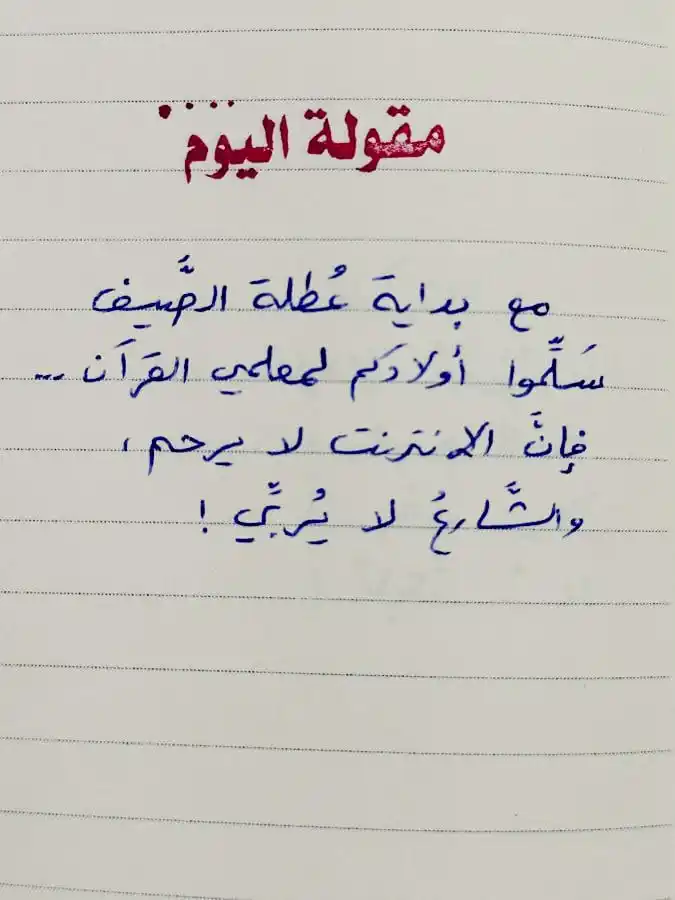 مقولة اليوم
مع بداية عُطلة الصَّيف
سَلِّموا أولادكم لمعلمي القرآن ...
فإنَّ الانترنت لا يرحم،
والشَّارعُ لا يُربِّي !